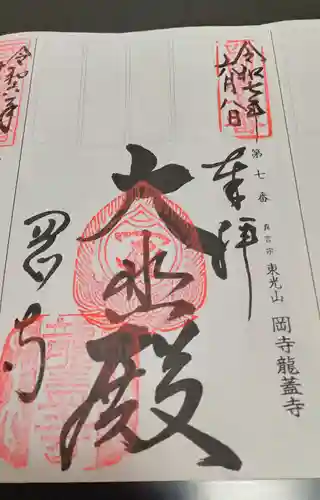 令和七年
六月八日
奉拝
第七番
真言宗 東光山 岡寺龍蓋寺
大悲殿
岡寺
令和六年